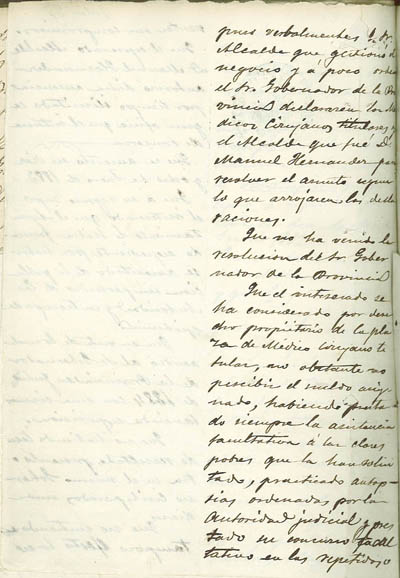 pues verbalmente á dho Sr.
Alcalde que gestionó el
negocio y á poco ordenó
el Sr. Gobernador de la Pro
vincia declararan los Mé
dicos Cirujanos titulares y
el Alcalde que fué D.
Manuel Hernandez para
resolver el asunto segun
lo que arrojaren las decla
raciones.
Que no ha venido la
resolucion del Sr. Gober
nador de la Provincia
Que el interesado se
ha considerado por dere
cho propietario de la pla
za de Médico Cirujano ti
tular, no obstante no
percibir el sueldo asig
nado, habiendo presta
do siempre la asistencia
facultativa á las clases
pobres que la han solici
tado, practicado autop
sias ordenadas por la
autoridad judicial y pres
tado su concurso facul
tativo en las repetidas